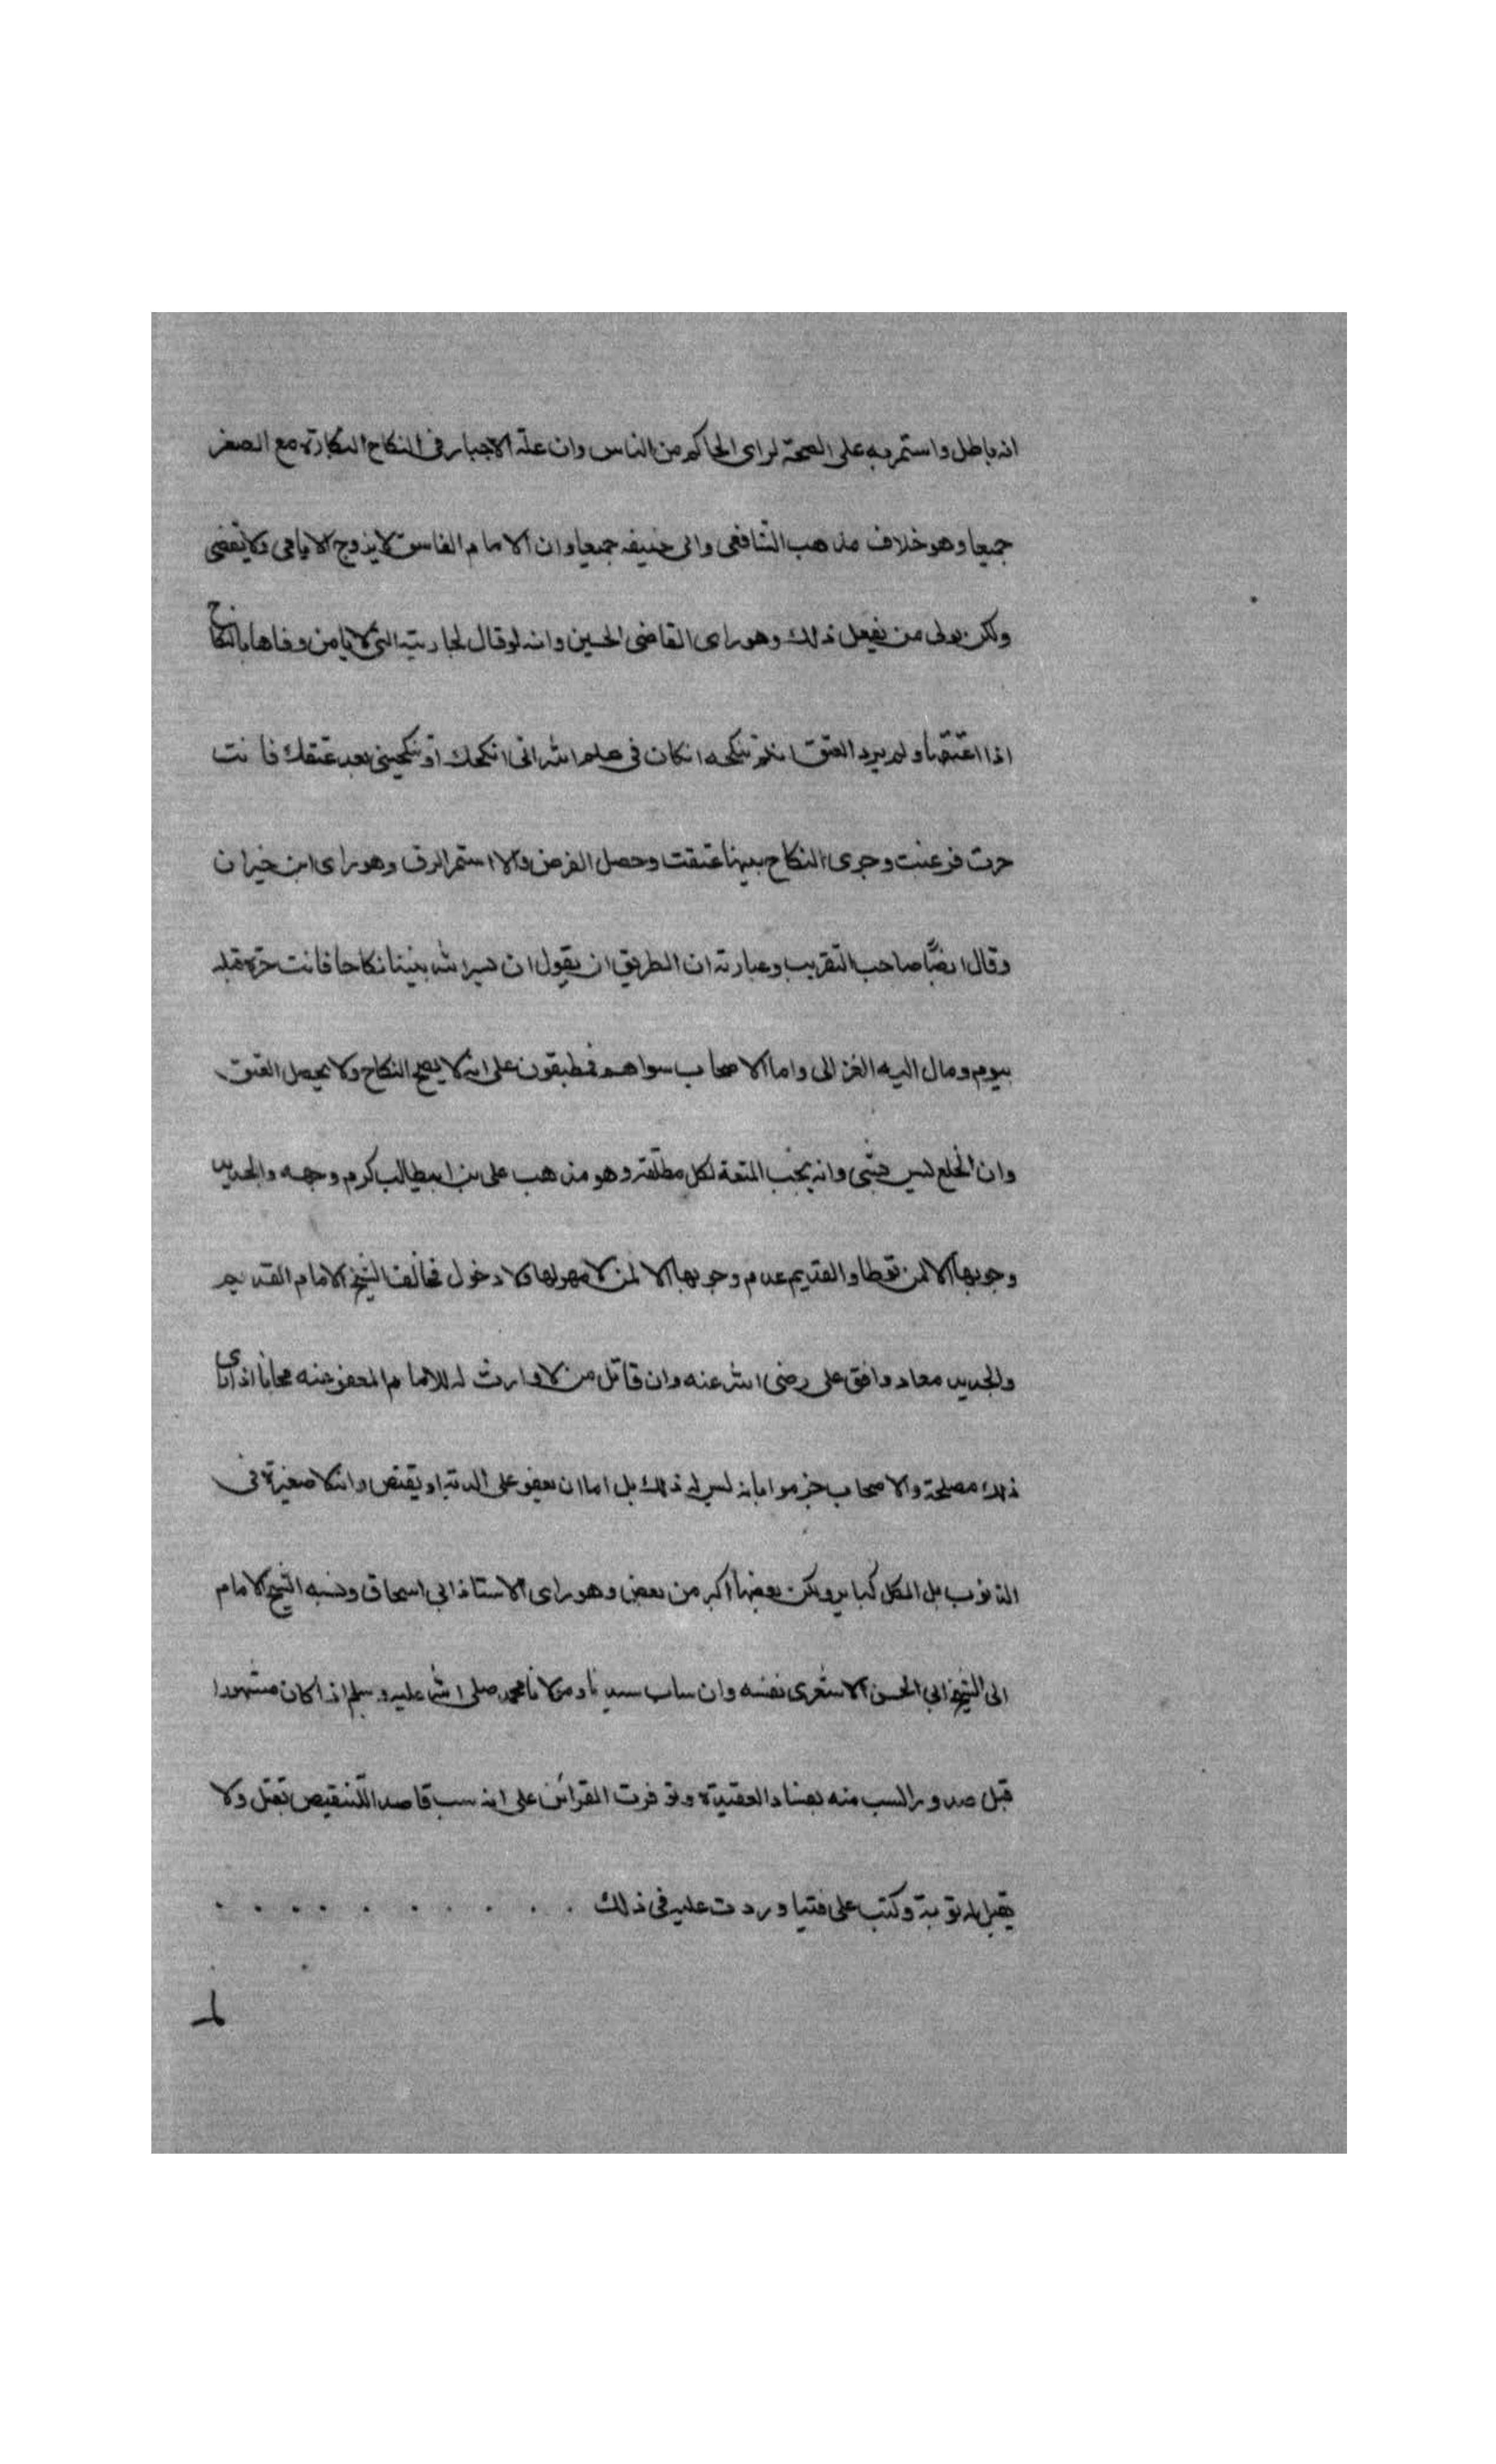 انه باطل واستمر به على الصحة لراى الحاكم من الناس وان علة الاجبار فى النكاح البكارة مع الصغر
جميعا وهو خلاف مذهب الشافعى وابى حنيفه جميعا وان الامام الفاسق لا يزوج الايامى ولا يقضى
ولكن يولى من يفعل ذلك وهو راى القاضى الحسين وانه لو قال لجاريته التى لا يامن وفاها بالنكاح
اذا اعتقها ولم يرد العتق ان لم تنكحه ان كان فى علم الله انى انكحك او تنكحينى بعد عتقك فانت
حرت فرغبت وجرى النكاح بينهما عتقت وحصل الغرض والا استمر الرق وهو راى ابن خيران
وقال ايضًا صاحب التقريب وعبارته ان الطريق ان يقول ان يسر الله بيننا نكاحا فانت حرة قبله
بيوم ومال اليه الغزالى واما الاصحاب سواهم فمطبقون على انه لا يصح النكاح ولا يحصل العتق
وان الخلع ليس بشى وانه يجب المتعة لكل مطلقة وهو مذهب على بن ابيطالب كرم وجهه والجديد
وجوبها الا لمن توطا والقديم عدم وجوبها الا لمن لا مهر لها ولا دخول فخالف الشيخ الامام القديم
والجديد معاد وافق على رضى الله عنه وان قاتل من لا وارث له للامام العفو عنه مجانا اذا راى
ذلك مصلحة والاصحاب جزموا بانه ليس له ذلك بل اما ان يعفو على الدية او يقتص وانه لا صغيرة فى
الذنوب بل الكل كباير ولكن بعضها اكبر من بعض وهو راى الاستاذ ابي اسحاق ونسبه الشيخ الامام
الى الشيخ ابي الحسن الاشعرى نفسه وان ساب سيدنا ومولانا محمد صلى الله عليه وسلم اذا كان مشهورا
قبل صدور السب منه بفساد العقيدة وتوفرت القرائن على انه سب قاصدا للتنقيص يقتل ولا
يقبل له توبة وكتب على فتيا وردت عليه فى ذلك . . . . . . . . . . .